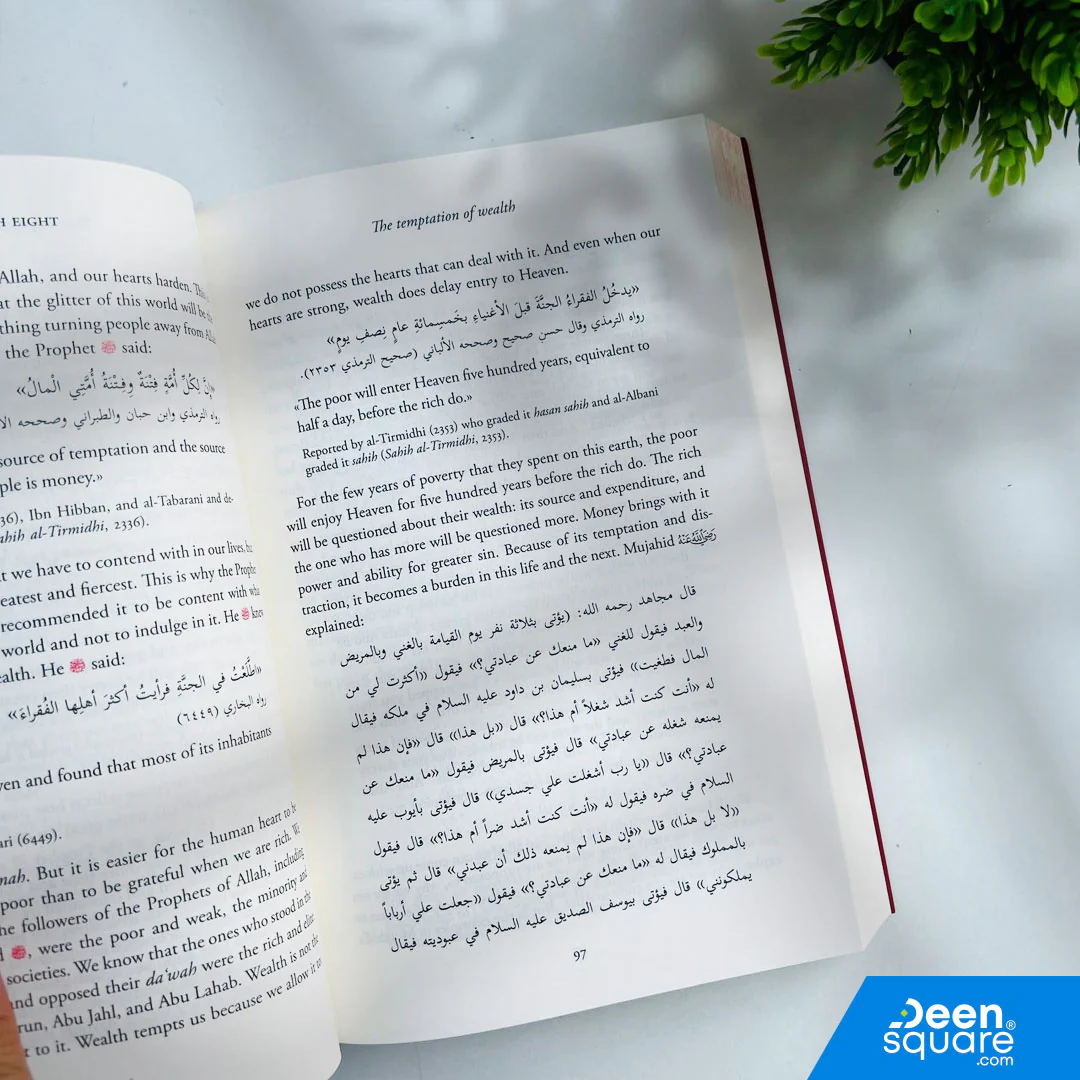 H EIGHT
Allah, and our hearts harden. This
at the glitter of this world will be
thing turning people away from Allah
the Prophet ﷺ said:
«إِنَّ لِكُلِّ أُمَّةٍ فِتْنَةٌ وَفِتْنَةُ أُمَّتِي الْمالُ»
رواه الترمذي وابن حبان والطبراني وصححه الا
source of temptation and the source
ple is money.»
36), Ibn Hibban, and al-Tabarani and de-
ahih al-Tirmidhi, 2336).
t we have to contend with in our lives, bu
eatest and fiercest. This is why the Prophe
recommended it to be content with wha
world and not to indulge in it. He ﷺ knew
ealth. He ﷺ said:
«اطَّلَعْتُ في الجنَّةِ فرأيتُ أكثرَ أهلِها الفُقراءَ»
رواه البخاري (٦٤٤٩)
ven and found that most of its inhabitants
ari (6449).
nah. But it is easier for the human heart to be
poor than to be grateful when we are rich. We
he followers of the Prophets of Allah, including
d ﷺ, were the poor and weak, the minority and
societies. We know that the ones who stood in the
and opposed their da‘wah were the rich and elite
run, Abu Jahl, and Abu Lahab. Wealth is not the
t to it. Wealth tempts us because we allow it to
The temptation of wealth
we do not possess the hearts that can deal with it. And even when our
hearts are strong, wealth does delay entry to Heaven.
«يدخُلُ الفقراءُ الجنَّةَ قبلَ الأغنياءِ بخَمسِمائةِ عامٍ نِصفِ يومٍ»
رواه الترمذي وقال حسن صحيح وصححه الألباني (صحيح الترمذي ٢٣٥٣).
«The poor will enter Heaven five hundred years, equivalent to
half a day, before the rich do.»
Reported by al-Tirmidhi (2353) who graded it hasan sahih and al-Albani
graded it sahih (Sahih al-Tirmidhi, 2353).
For the few years of poverty that they spent on this earth, the poor
will enjoy Heaven for five hundred years before the rich do. The rich
will be questioned about their wealth: its source and expenditure, and
the one who has more will be questioned more. Money brings with it
power and ability for greater sin. Because of its temptation and dis-
traction, it becomes a burden in this life and the next. Mujahid رَضِيَ اللَّهُ عَنْهُ
explained:
قال مجاهد رحمه الله: (يؤتى بثلاثة نفر يوم القيامة بالغني وبالمريض
والعبد فيقول للغني «ما منعك عن عبادتي؟» فيقول «أكثرت لي من
المال فطغيت» فيؤتى بسليمان بن داود عليه السلام في ملكه فيقال
له «أنت كنت أشد شغلاً أم هذا؟» قال «بل هذا» قال «فإن هذا لم
يمنعه شغله عن عبادتي» قال فيؤتى بالمريض فيقول «ما منعك عن
عبادتي؟» قال «يا رب أشغلت علي جسدي» قال فيؤتى بأيوب عليه
السلام في ضره فيقول له «أنت كنت أشد ضراً أم هذا؟» قال فيقول
«لا بل هذا» قال «فإن هذا لم يمنعه ذلك أن عبدني» قال ثم يؤتى
بالمملوك فيقال له «ما منعك عن عبادتي؟» فيقول «جعلت علي أرباباً
يملكونني» قال فيؤتى بيوسف الصديق عليه السلام في عبوديته فيقال
97
Deen
square®
.com